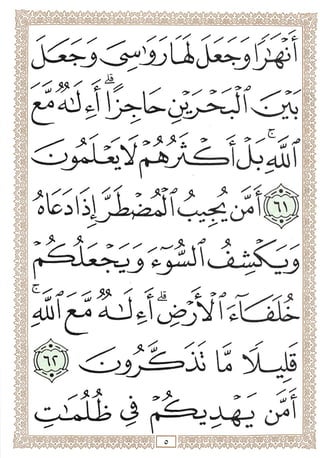 أَنْهَٰرًا وَجَعَلَ لَهَا رَوَٰسِىَ وَجَعَلَ
بَيْنَ ٱلْبَحْرَيْنِ حَاجِزًا ۗ أَءِلَٰهٌ مَّعَ
ٱللَّهِ ۚ بَلْ أَكْثَرُهُمْ لَا يَعْلَمُونَ
٦١ أَمَّن يُجِيبُ ٱلْمُضْطَرَّ إِذَا دَعَاهُ
وَيَكْشِفُ ٱلسُّوٓءَ وَيَجْعَلُكُمْ
خُلَفَآءَ ٱلْأَرْضِ ۗ أَءِلَٰهٌ مَّعَ ٱللَّهِ ۚ
قَلِيلًا مَّا تَذَكَّرُونَ ٦٢
أَمَّن يَهْدِيكُمْ فِى ظُلُمَٰتِ
٥